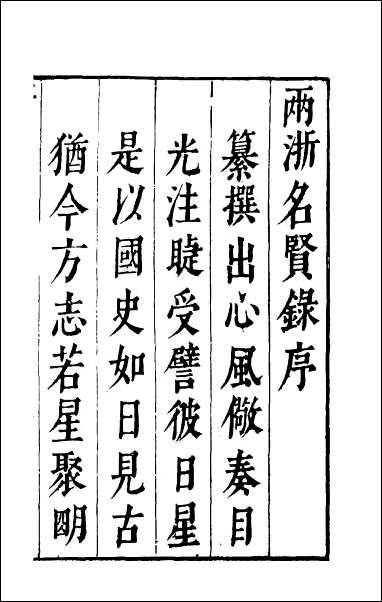 兩浙名賢錄序
纂撰出心風儆奏目
光注睫受譬彼日星
是以國史如日見古
猶今方志若星聚明